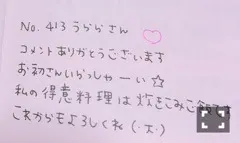 No. 413 うららさん
コメントありがとうございます
お初さんいらっしゃーい☆
私の得意料理は炊きこみご飯です
これからもよろしくね (・ェ・)